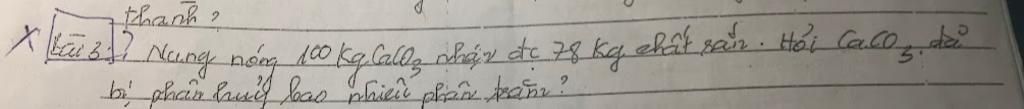 thanh?
X Bài 3: ? Nung nóng 100 Kg CaCO3 nhận đc 78 Kg chất rắn. Hỏi CaCO3 đã
bị phân huỷ bao nhiêu phần trăm?